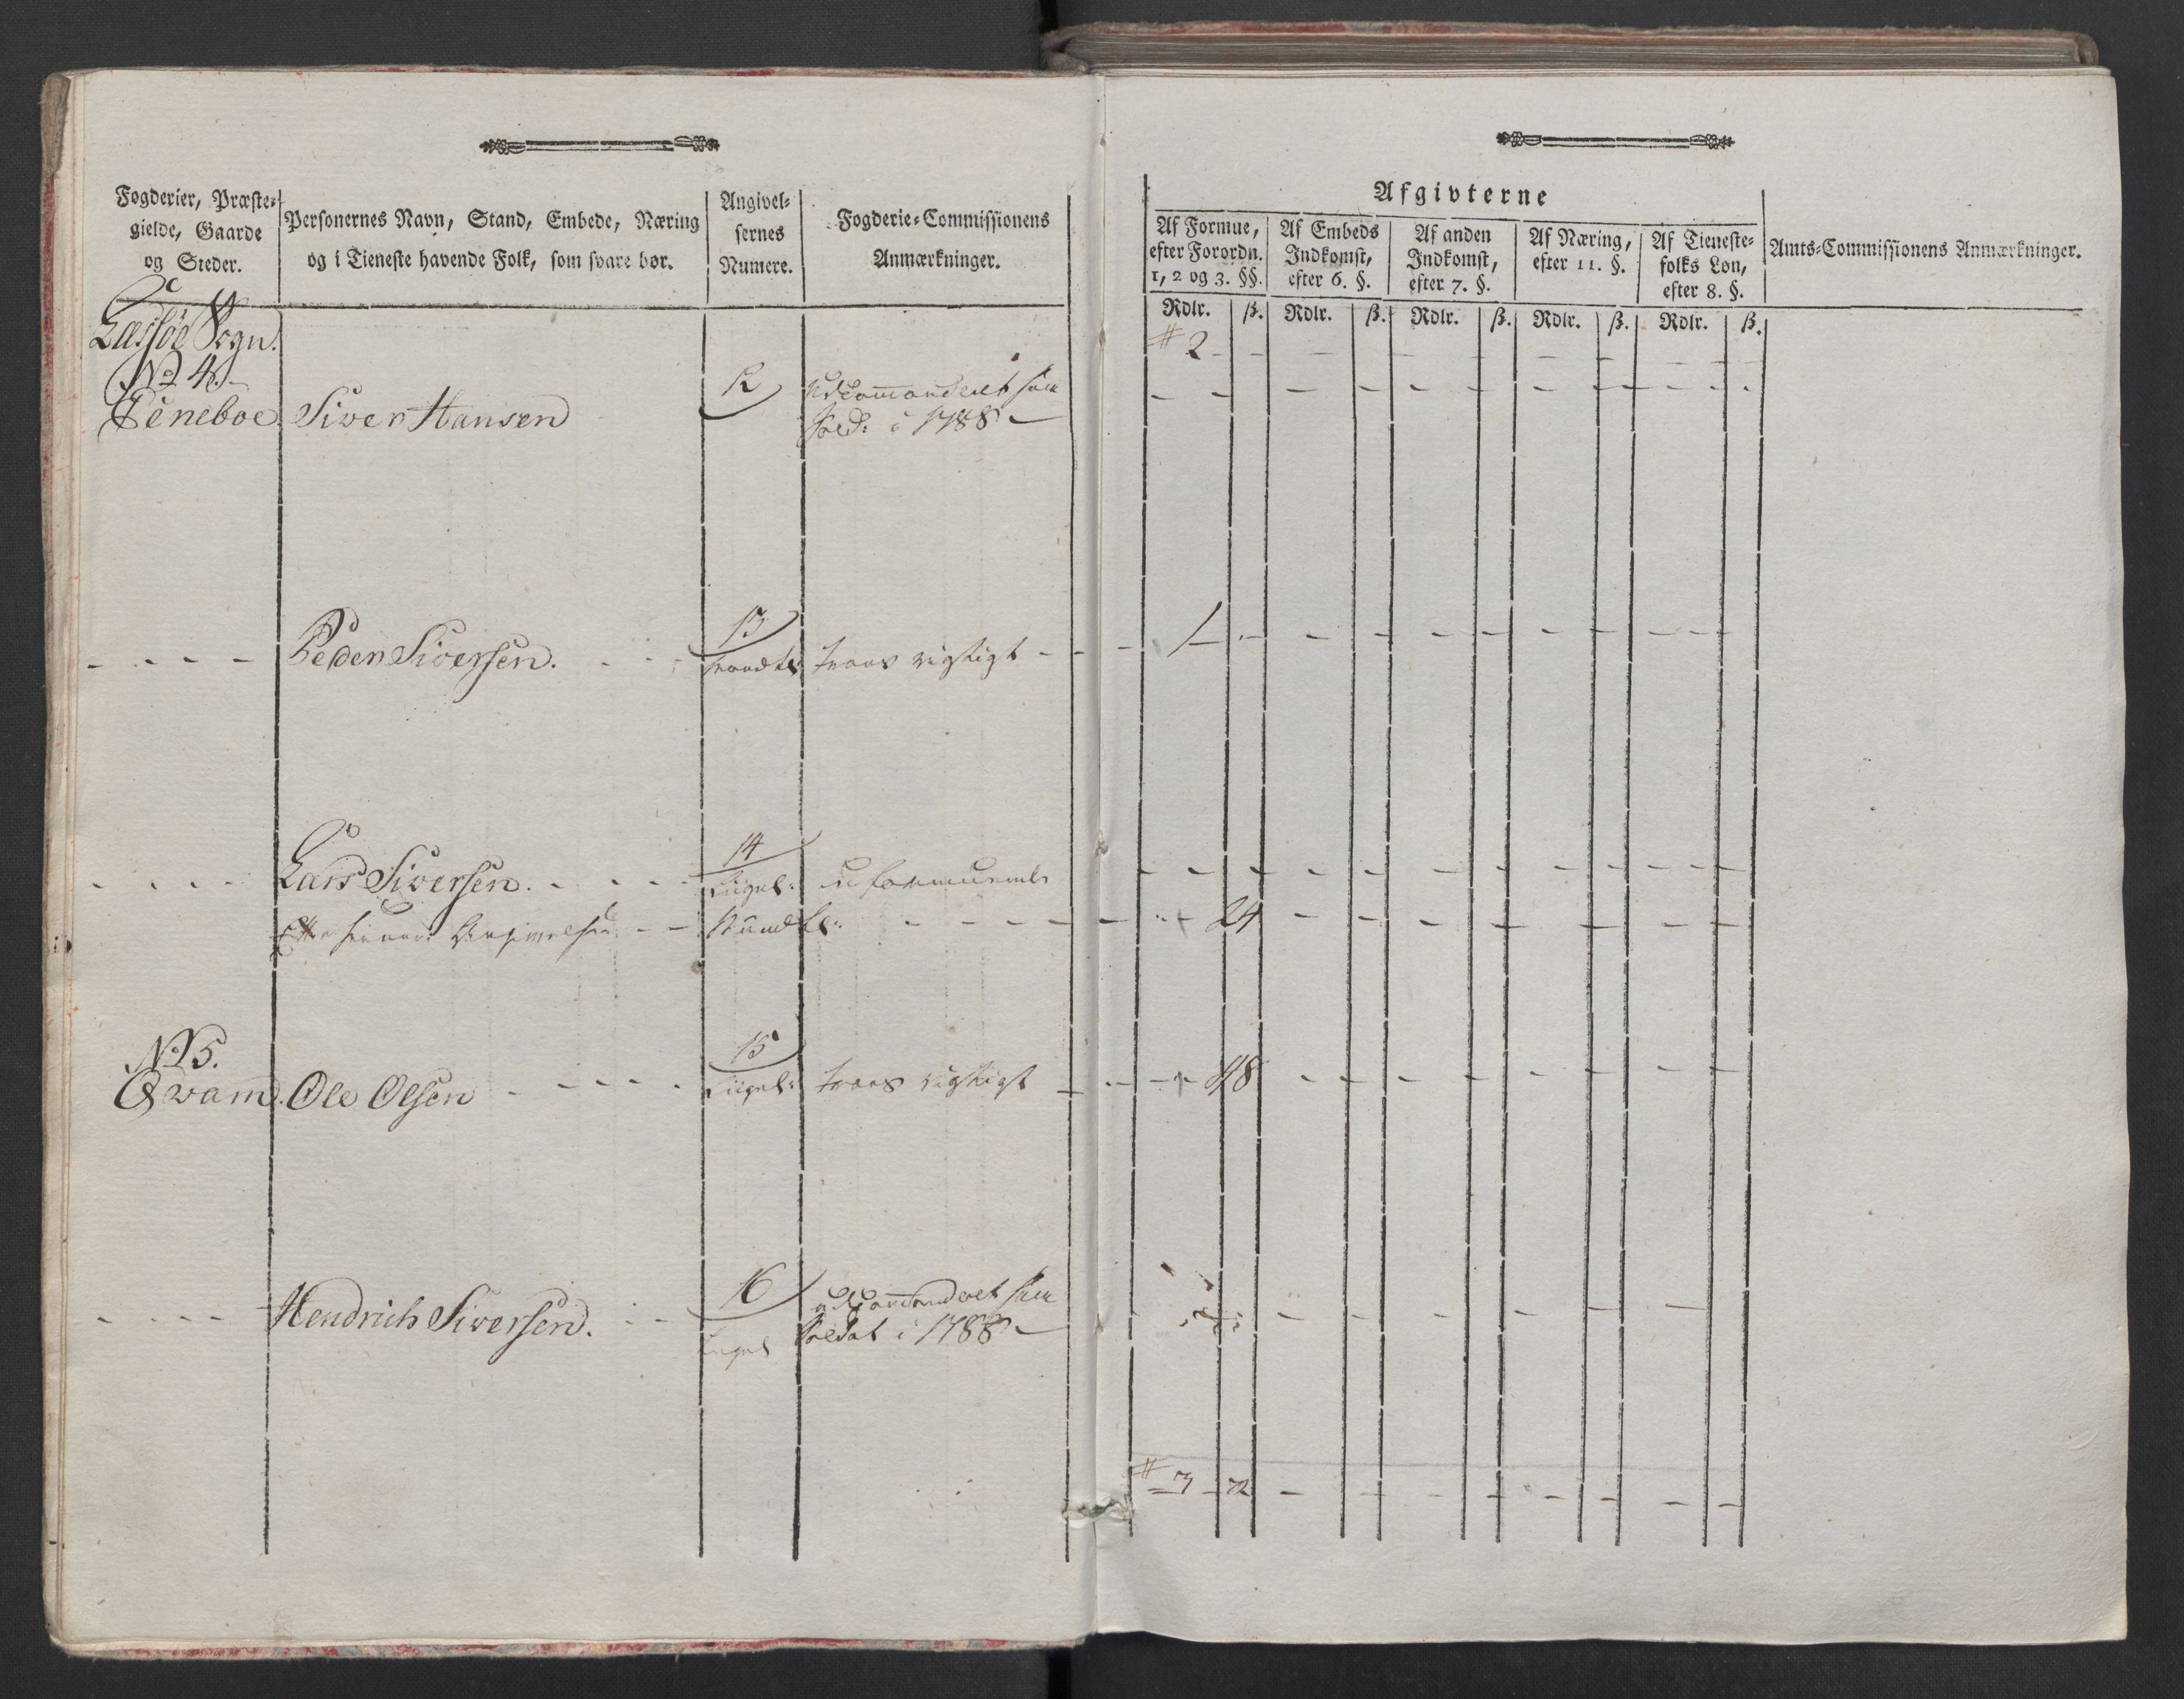 Fogderier, Præste-
gielde, Gaarde
og Steder.
Personernes Navn, Stand, Embede, Næring
og i Tieneste havende Folk, som svare bør.
Angivel-
sernes
Numere.
Fogderie-Commissionens
Anmærkninger.
Afgivterne
Af Formue,
efter Forordn.
1, 2 og 3. §§.
Af Embeds
Indkomst,
efter 6. §.
Af anden
Indkomst,
efter 7. §.
Af Næring,
efter 11. §.
Af Tieneste-
folks Løn,
efter 8. §.
Amts-Commissionens Anmærkninger.
Rdlr. ß. Rdlr. ß. Rdlr. ß. Rdlr. ß. Rdlr. ß.
Sogn.
2
No 4.
12
udcommanderet som
Siver Hansen
Sold: i 1788
13
1
Peder Siversen.
svars rigtigt
14
Lars Siversen.
Ligel:
uformuende
24
No 5.
15
Qvam.
Ole Olsen
Ligel:
svars rigtigt
48
16
udcommanderet som
Hendrich Siversen.
Ligel
Soldat i 1788
3 72